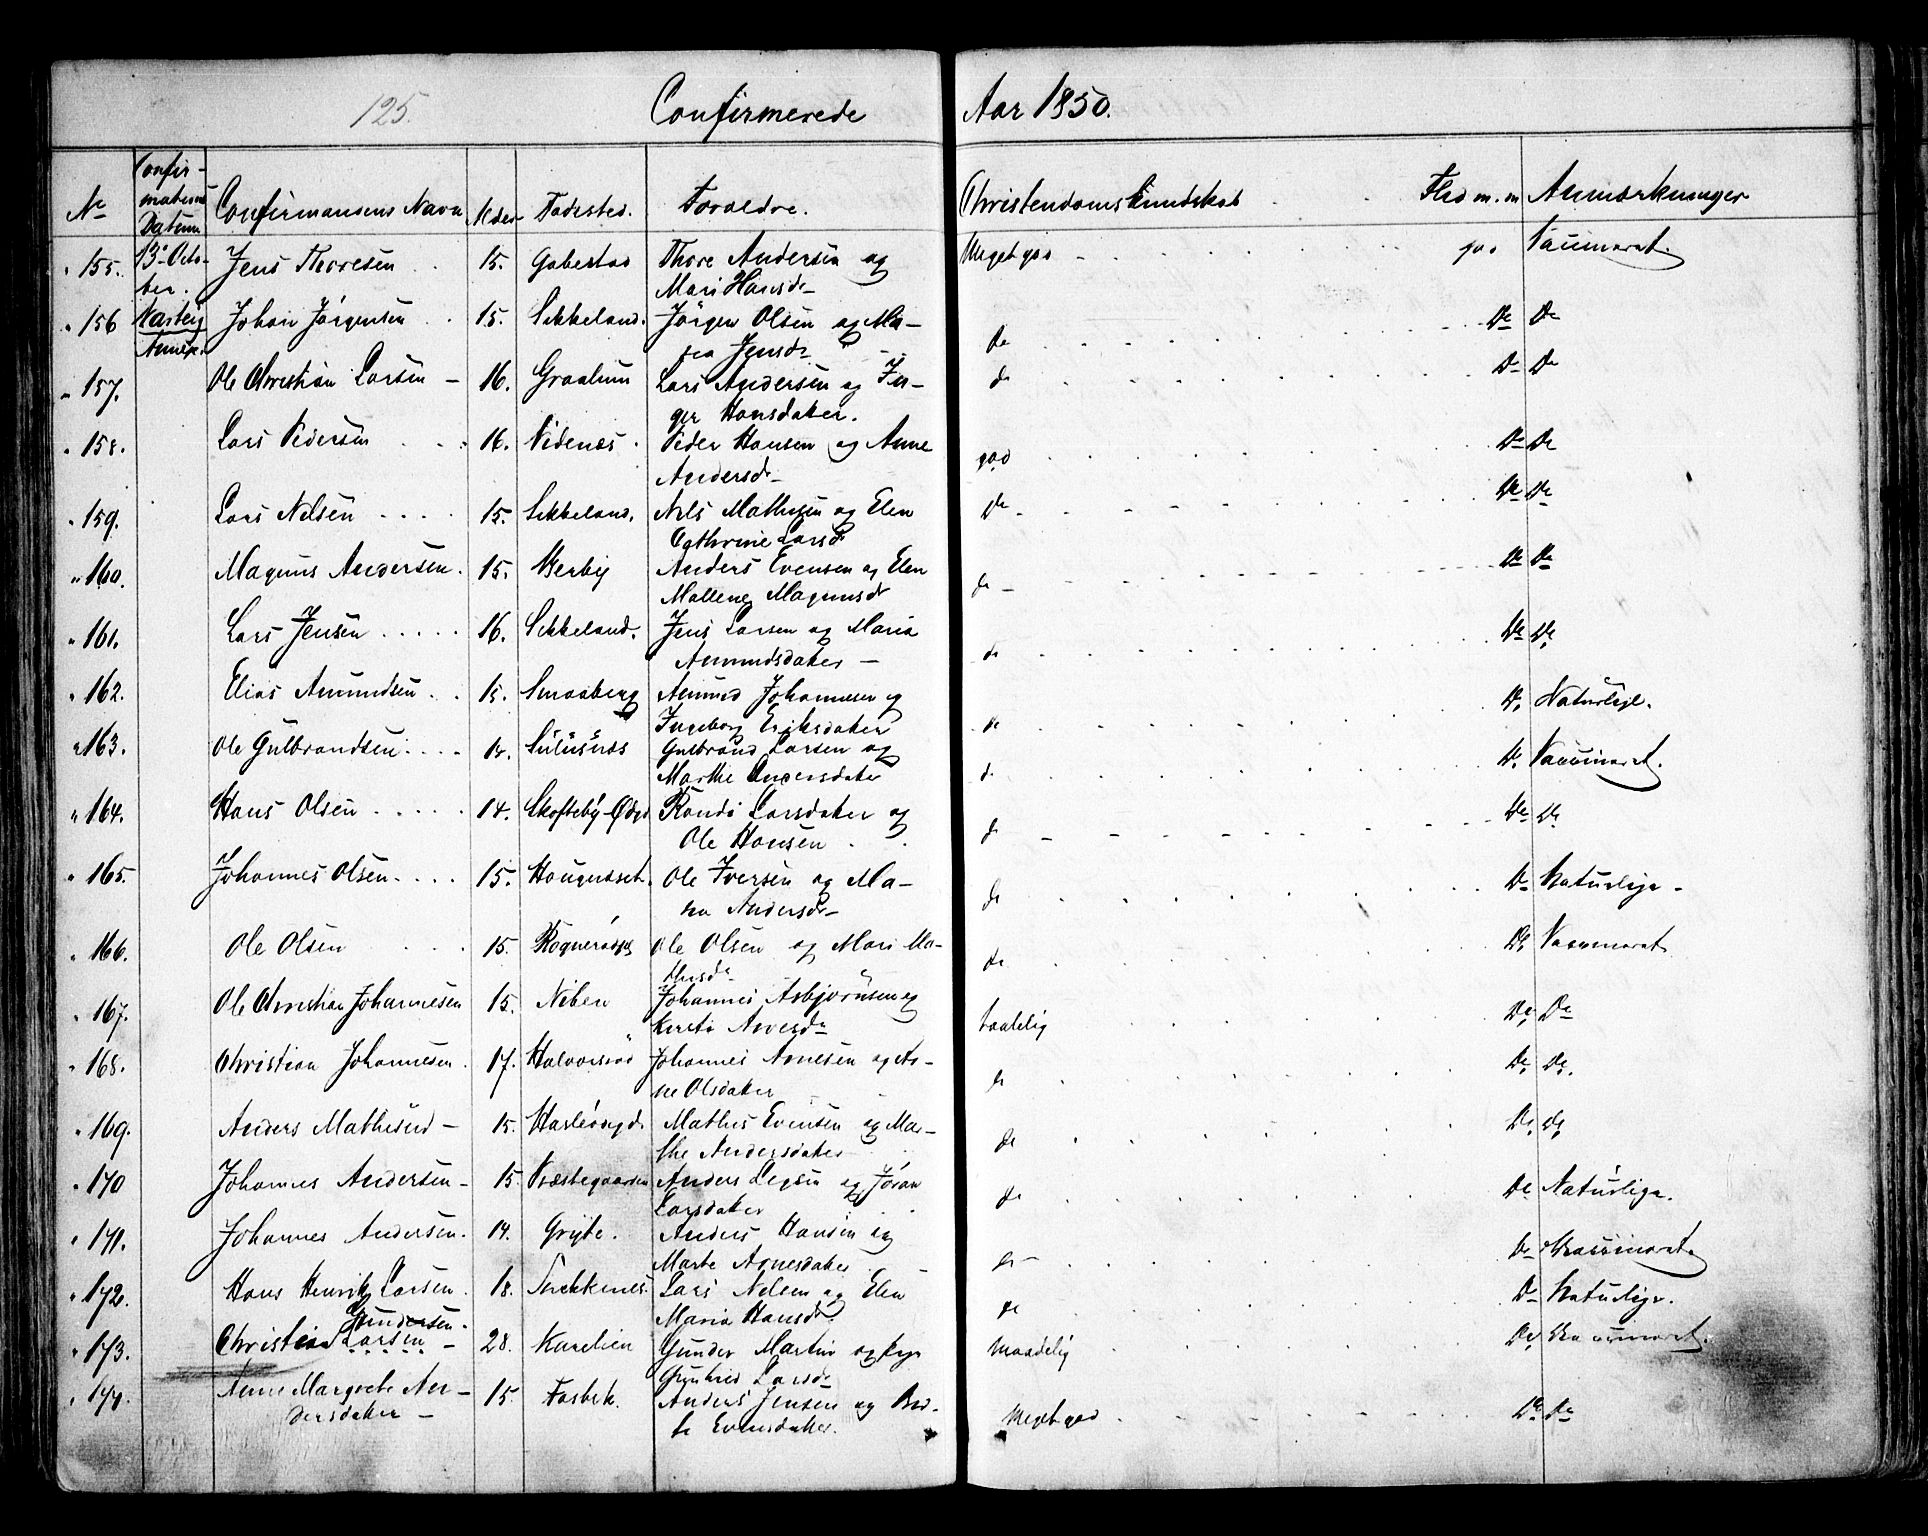 125.
Confirmerede Aar 1850.
No Confirmations Datum Confirmandens Navn Alder Fødested. Forældre. Christendomskundskab Flid m. m Anmærkninger
155. 13de Octo- Jens Thoresen 15. Gabestad Thore Andersen og Meget god god Vaccineret.
ber. Mari Hansdr
156 Varteig Johan Jørgensen 15. Sikkeland. Jørgen Olsen og Ma- Do Do
Annex. Jensdr do
157. Ole Christian Larsen 16. Graalum Lars Andersen og In- do Do Do
ger Hansdater.
158. Lars Pedersen 16. Videnæs Peder Hansen og Anne god Do Do
Andersdr
159. Lars Nilsen 15. Sikkeland. Nils Mathisen og Elen Do Do Do
Cathrine Larsdr
160. Magnus Andersen. 15. Herby Anders Evensen og Elen do Do Do
Mallene Magnusdr
161. Lars Jensen 16. Sikkeland. Jens Larsen og Maria do Do Do
Amundsdater
162. Elias Amundsen 15. Smaaberg Amund Johannesen og do Do Naturlige.
Ingeborg Eriksdater
163. Ole Gulbrandsen 14. Gulbrand Larsen og do Do Vaccineret.
Marthe Andersdater
164. Hans Olsen 14. Skofteby Randi Larsdater og do Do Do
Ole Hansen
165. Johannes Olsen 15. Ole Iversen og Ma- do Do Naturlige
Andersdr
166. Ole Olsen 15. Ole Olsen og Mari Ma- do Do Vaccineret
thisdr
167. Ole Christian Johannesen 15. Johannes Asbjørnsen og taalelig Do Do
Kersti Arvesdr
168. Christian Johannesen 17. Halvorsrød Johannes Arnesen og An- do Do Do.
ne Olsdater
169. Anders Mathisen 15. Mathis Evensen og Mar- do Do Do
the Andersdater
170 Johannes Andersen 15. Præstegaarden Anders og Jøran do Do Naturlige.
Larsdater
171. Johannes Andersen. 14. Gryte. Anders Hansen og do Do Vaccineret
Marte Arnesdater
172. Hans Henrik Larsen. 18. Lars Nilsen og Elen do Do Naturlige.
Maria Hansdr
Gundersen.
173. Christian Larsen 28. Gunder Martin og maadelig Do Vaccineret.
Larsdr
174. Anne Margrete An- 15. Fasbek. Anders Jensen og Ber- Meget god Do Do
dersdater te Evensdater.